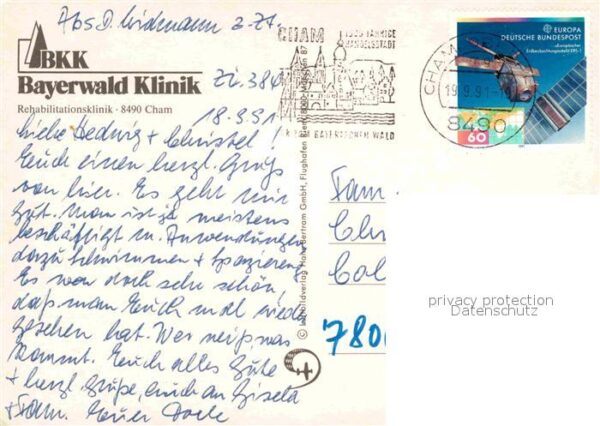 Abs. D. Lindemann z. Zt.
BKK
Bayerwald Klinik
Rehabilitationsklinik · 8490 Cham
Zi. 384
18.9.91
Liebe Hedwig + Christel!
Euch einen herzl. Gruß
von hier. Es geht mir
gut. Man ist ja meistens
beschäftigt m. Anwendungen
dazu Schwimmen + Spazieren
Es war doch sehr schön,
daß man Euch mal wieder
gesehen hat. Wer weiß, was
kommt. Euch alles Gute
+ herzl. Grüße, auch an Gisela
+ Fam. Eure
CHAM
HANDELSSTADT
BAYERISCHEN WALD
EUROPA
DEUTSCHE BUNDESPOST
60
CHAM
19.9.91
8490
© Luftbildverlag Hans Bertram GmbH, Flughafen
Fam.
780
privacy protection
Datenschutz